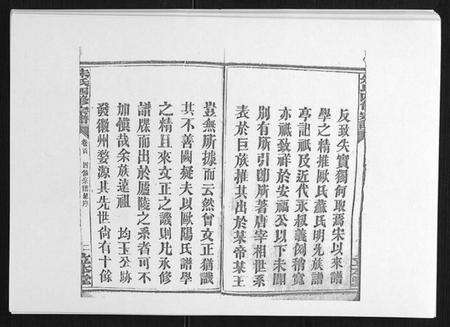 反致失實獨何取焉宋以來譜
學之精推歐氏蘇氏明先族譜
亭記祇及近代永叔義例稍寬
亦祇發祥於安福公以下未聞
別有所引卽所著唐宰相世系
表於巨族推其出於某帝某王
豈無所據而云然曾文正猶譏
其不善闕疑夫以歐陽氏譜學
之精且來文正之譏則凡承修
譜牒而出於廬陵之系者可不
加慎哉余族遠祖 均玉公跡
發徽州婺源其先世尙有十餘
卷首
二